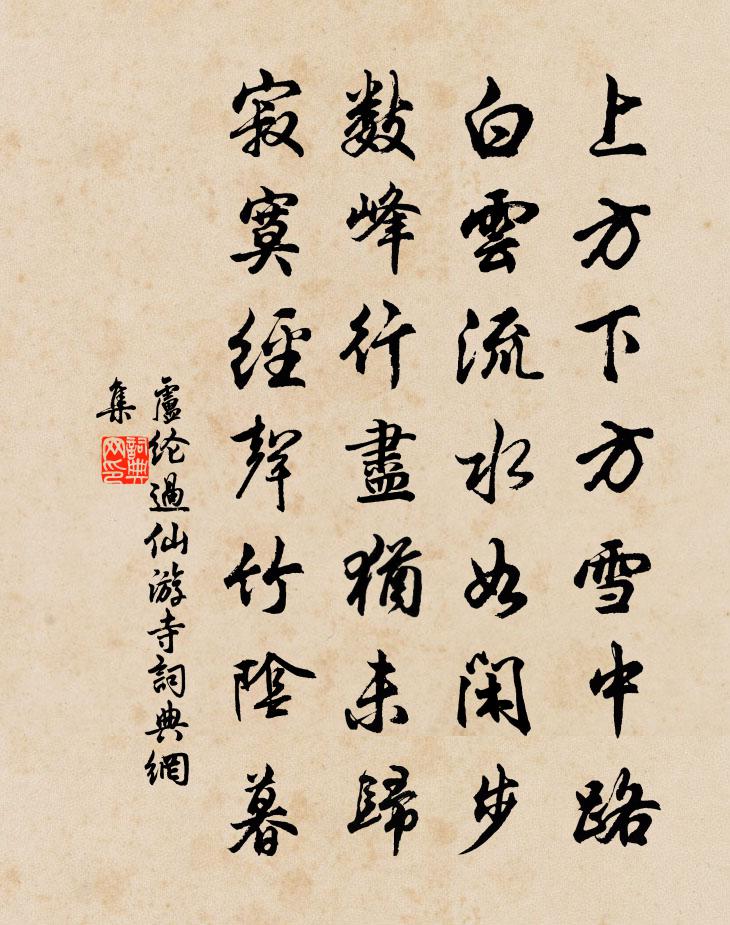 上方下方雪中路
白雲流水如閑步
數峰行盡猶未歸
寂寞經聲竹陰暮
盧纶過仙游寺詞典網
集
詞典网印